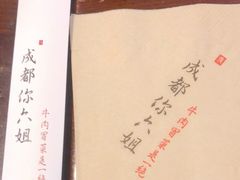 成都你六姐
牛肉冒菜是一绝
成都你六姐
牛肉冒菜是一绝